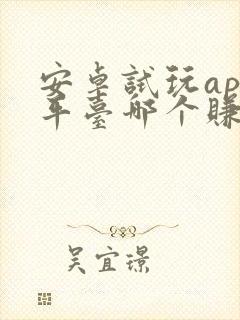 安卓試玩ap
平臺哪个賺
吴宜璟